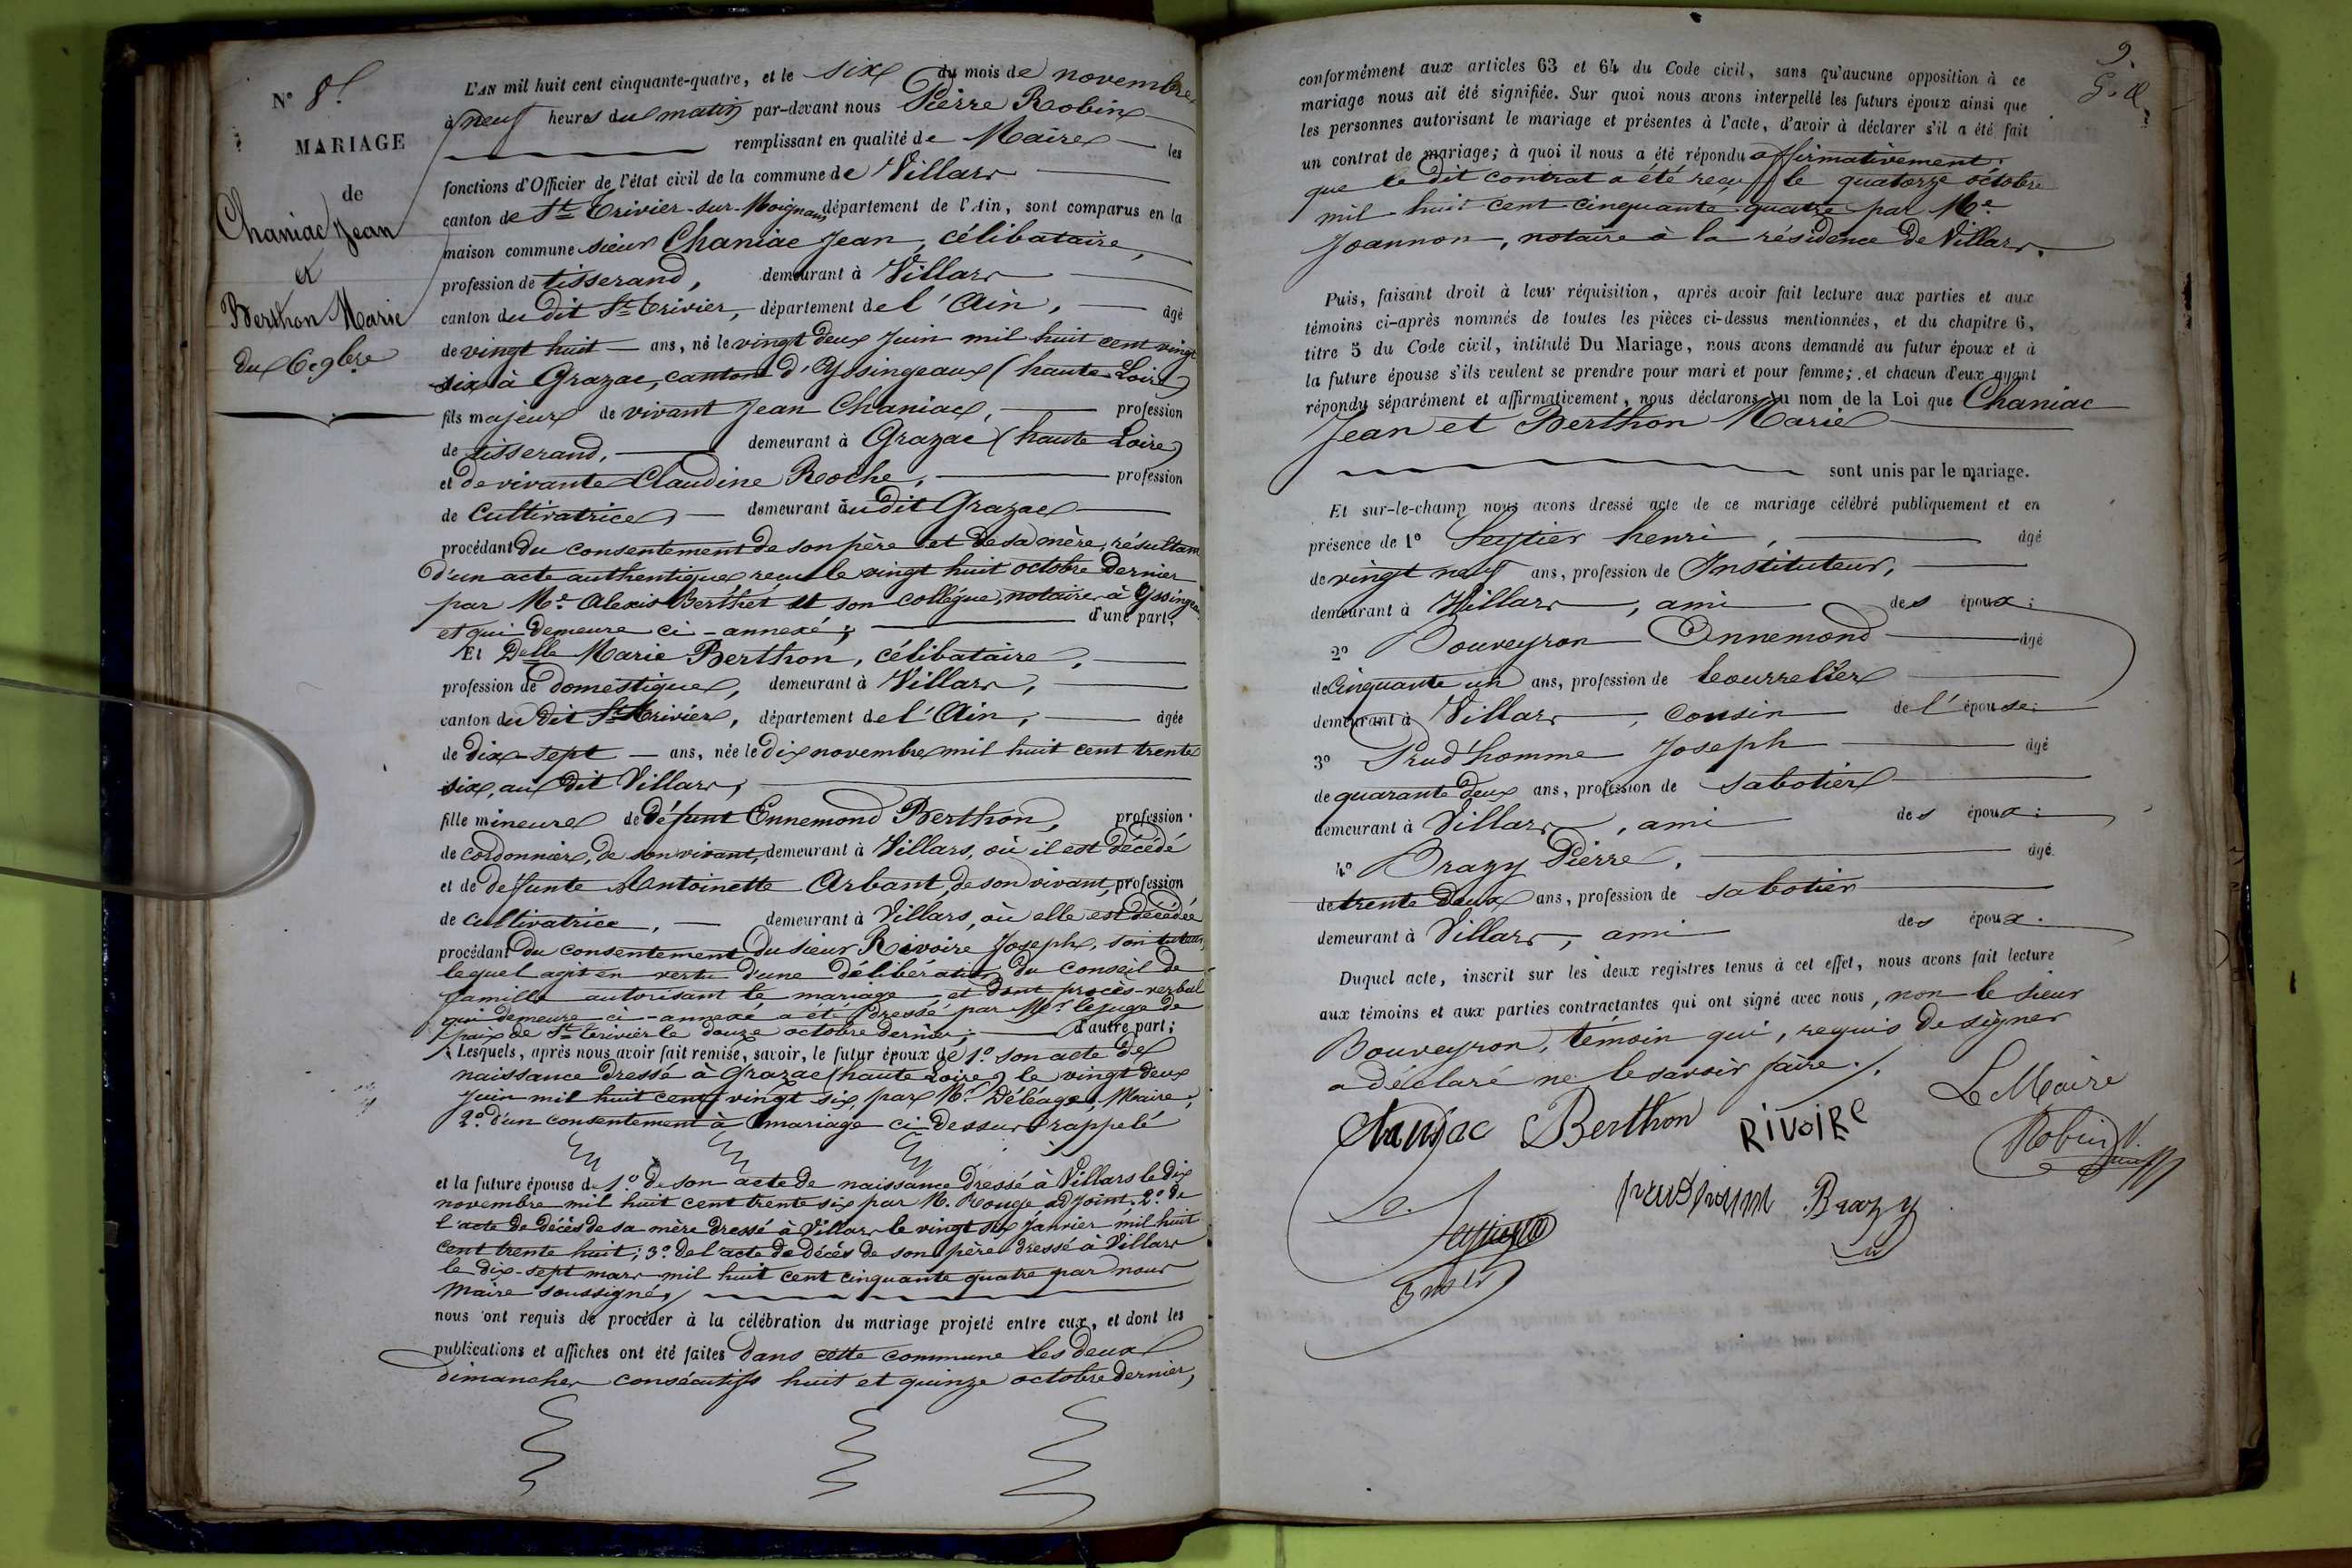 N° 8.
MARIAGE
de
Chaniac Jean
et
Berthon Marie
du 6 9bre
L'AN mil huit cent cinquante-quatre, et le six du mois de novembre
à neuf heures du matin par-devant nous Pierre Robin
remplissant en qualité de Maire les
fonctions d'Officier de l'état civil de la commune de Villars
canton de St Trivier-sur-Moignans département de l'Ain, sont comparus en la
maison commune sieur Chaniac Jean, célibataire,
profession de tisserand, demeurant à Villars
canton du dit St Trivier, département de l'Ain, âgé
de vingt huit ans, né le vingt deux Juin mil huit cent vingt
six à Grazac, canton d'Yssingeaux (haute Loire)
fils majeur de vivant Jean Chaniac, profession
de tisserand, demeurant à Grazac (haute Loire)
et de vivante Claudine Roche, profession
de Cultivatrice, demeurant au dit Grazac
procédant du consentement de son père et de sa mère, résultant
d'un acte authentique, reçu le vingt huit octobre dernier
par Me Alexis Berthet et son collégue, notaire à Yssingea
et qui demeure ci-annexé; d'une part,
Et Delle Marie Berthon, célibataire,
profession de domestique, demeurant à Villars,
canton du dit St Trivier, département de l'Ain, âgée
de dix-sept ans, née le dix novembre mil huit cent trente
six, au dit Villars,
fille mineure de défunt Ennemond Berthon, profession
de cordonnier, de son vivant, demeurant à Villars, où il est décédé
et de défunte Antoinette Arbant, de son vivant, profession
de cultivatrice, demeurant à Villars, où elle est décédée
procédant du consentement du sieur Rivoire Joseph, son tuteur,
lequel agit en vertu d'une délibération du Conseil de
famille autorisant le mariage et dont procès-verbal
qui demeure ci-annexé a été dressé par Mr le juge de
paix de St Trivier le douze octobre dernier; d'autre part;
Lesquels, après nous avoir fait remise, savoir, le futur époux de 1° son acte de
naissance dressé à Grazac (haute Loire) le vingt deux
Juin mil huit cent vingt six, par Mr Déléage, Maire,
2° d'un consentement à mariage ci-dessus rappelé
et la future épouse de 1° de son acte de naissance dressé à Villars le dix
novembre mil huit cent trente six par M. Rouge adjoint, 2° de
l'acte de décès de sa mère dressé à Villars le vingt six Janvier mil huit
cent trente huit; 3° de l'acte de décès de son père dressé à Villars
le dix-sept mars mil huit cent cinquante quatre par nous
Maire soussigné,
nous ont requis de procéder à la célébration du mariage projeté entre eux, et dont les
publications et affiches ont été faites dans cette commune les deux
dimanches consécutifs huit et quinze octobre dernier,
9.
conformément aux articles 63 et 64 du Code civil, sans qu'aucune opposition à ce
mariage nous ait été signifiée. Sur quoi nous avons interpellé les futurs époux ainsi que
les personnes autorisant le mariage et présentes à l'acte, d'avoir à déclarer s'il a été fait
un contrat de mariage; à quoi il nous a été répondu affirmativement.
que le dit contrat a été reçu le quatorze octobre
mil huit cent cinquante quatre par Me
Joannon, notaire à la résidence de Villars.
Puis, faisant droit à leur réquisition, après avoir fait lecture aux parties et aux
témoins ci-après nommés de toutes les pièces ci-dessus mentionnées, et du chapitre 6,
titre 5 du Code civil, intitulé Du Mariage, nous avons demandé au futur époux et à
la future épouse s'ils veulent se prendre pour mari et pour femme; et chacun d'eux ayant
répondu séparément et affirmativement, nous déclarons au nom de la Loi que Chaniac
Jean et Berthon Marie
sont unis par le mariage.
Et sur-le-champ nous avons dressé acte de ce mariage célébré publiquement et en
présence de 1° Seytier henri, âgé
de vingt neuf ans, profession de Instituteur,
demeurant à Villars, ami des époux;
2° Bouveyron Ennemond âgé
de Cinquante un ans, profession de bourrelier
demeurant à Villars, cousin de l'épouse;
3° Prud'homme Joseph âgé
de quarante deux ans, profession de sabotier
demeurant à Villars, ami des époux;
4° Brazy Pierre, âgé
de trente deux ans, profession de sabotier
demeurant à Villars, ami des époux.
Duquel acte, inscrit sur les deux registres tenus à cet effet, nous avons fait lecture
aux témoins et aux parties contractantes qui ont signé avec nous, non le sieur
Bouveyron, témoin qui, requis de signer
a déclaré ne le savoir faire.
Le Maire
Chaniac Berthon RIVOIRE
Robin
Brazy